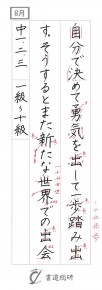 8月
自分で決めて勇気を出して一歩踏み出
す。そうするとまた新たな世界での出会
中一・二・三 一級〜十級
書道総研